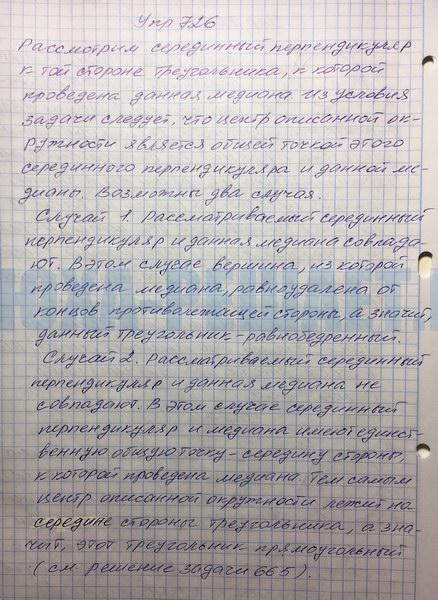 Упр 726
Рассмотрим серединный перпендикуляр
к той стороне треугольника, к которой
проведена данная медиана. Из условия
задачи следует, что центр описанной ок-
ружности является общей точкой этого
серединного перпендикуляра и данной ме-
дианы. Возможны два случая.
Случай 1. Рассматриваемый серединный
перпендикуляр и данная медиана совпада-
ют. В этом случае вершина, из которой
проведена медиана, равноудалена от
концов противолежащей стороны, а значит,
данный треугольник - равнобедренный.
Случай 2. Рассматриваемый серединный
перпендикуляр и данная медиана не
совпадают. В этом случае серединный
перпендикуляр и медиана имеют единст-
венную общую точку - середину стороны,
к которой проведена медиана. Тем самым
центр описанной окружности лежит на
середине стороны треугольника, а зна-
чит, этот треугольник прямоугольный
(см. решение задачи 665).